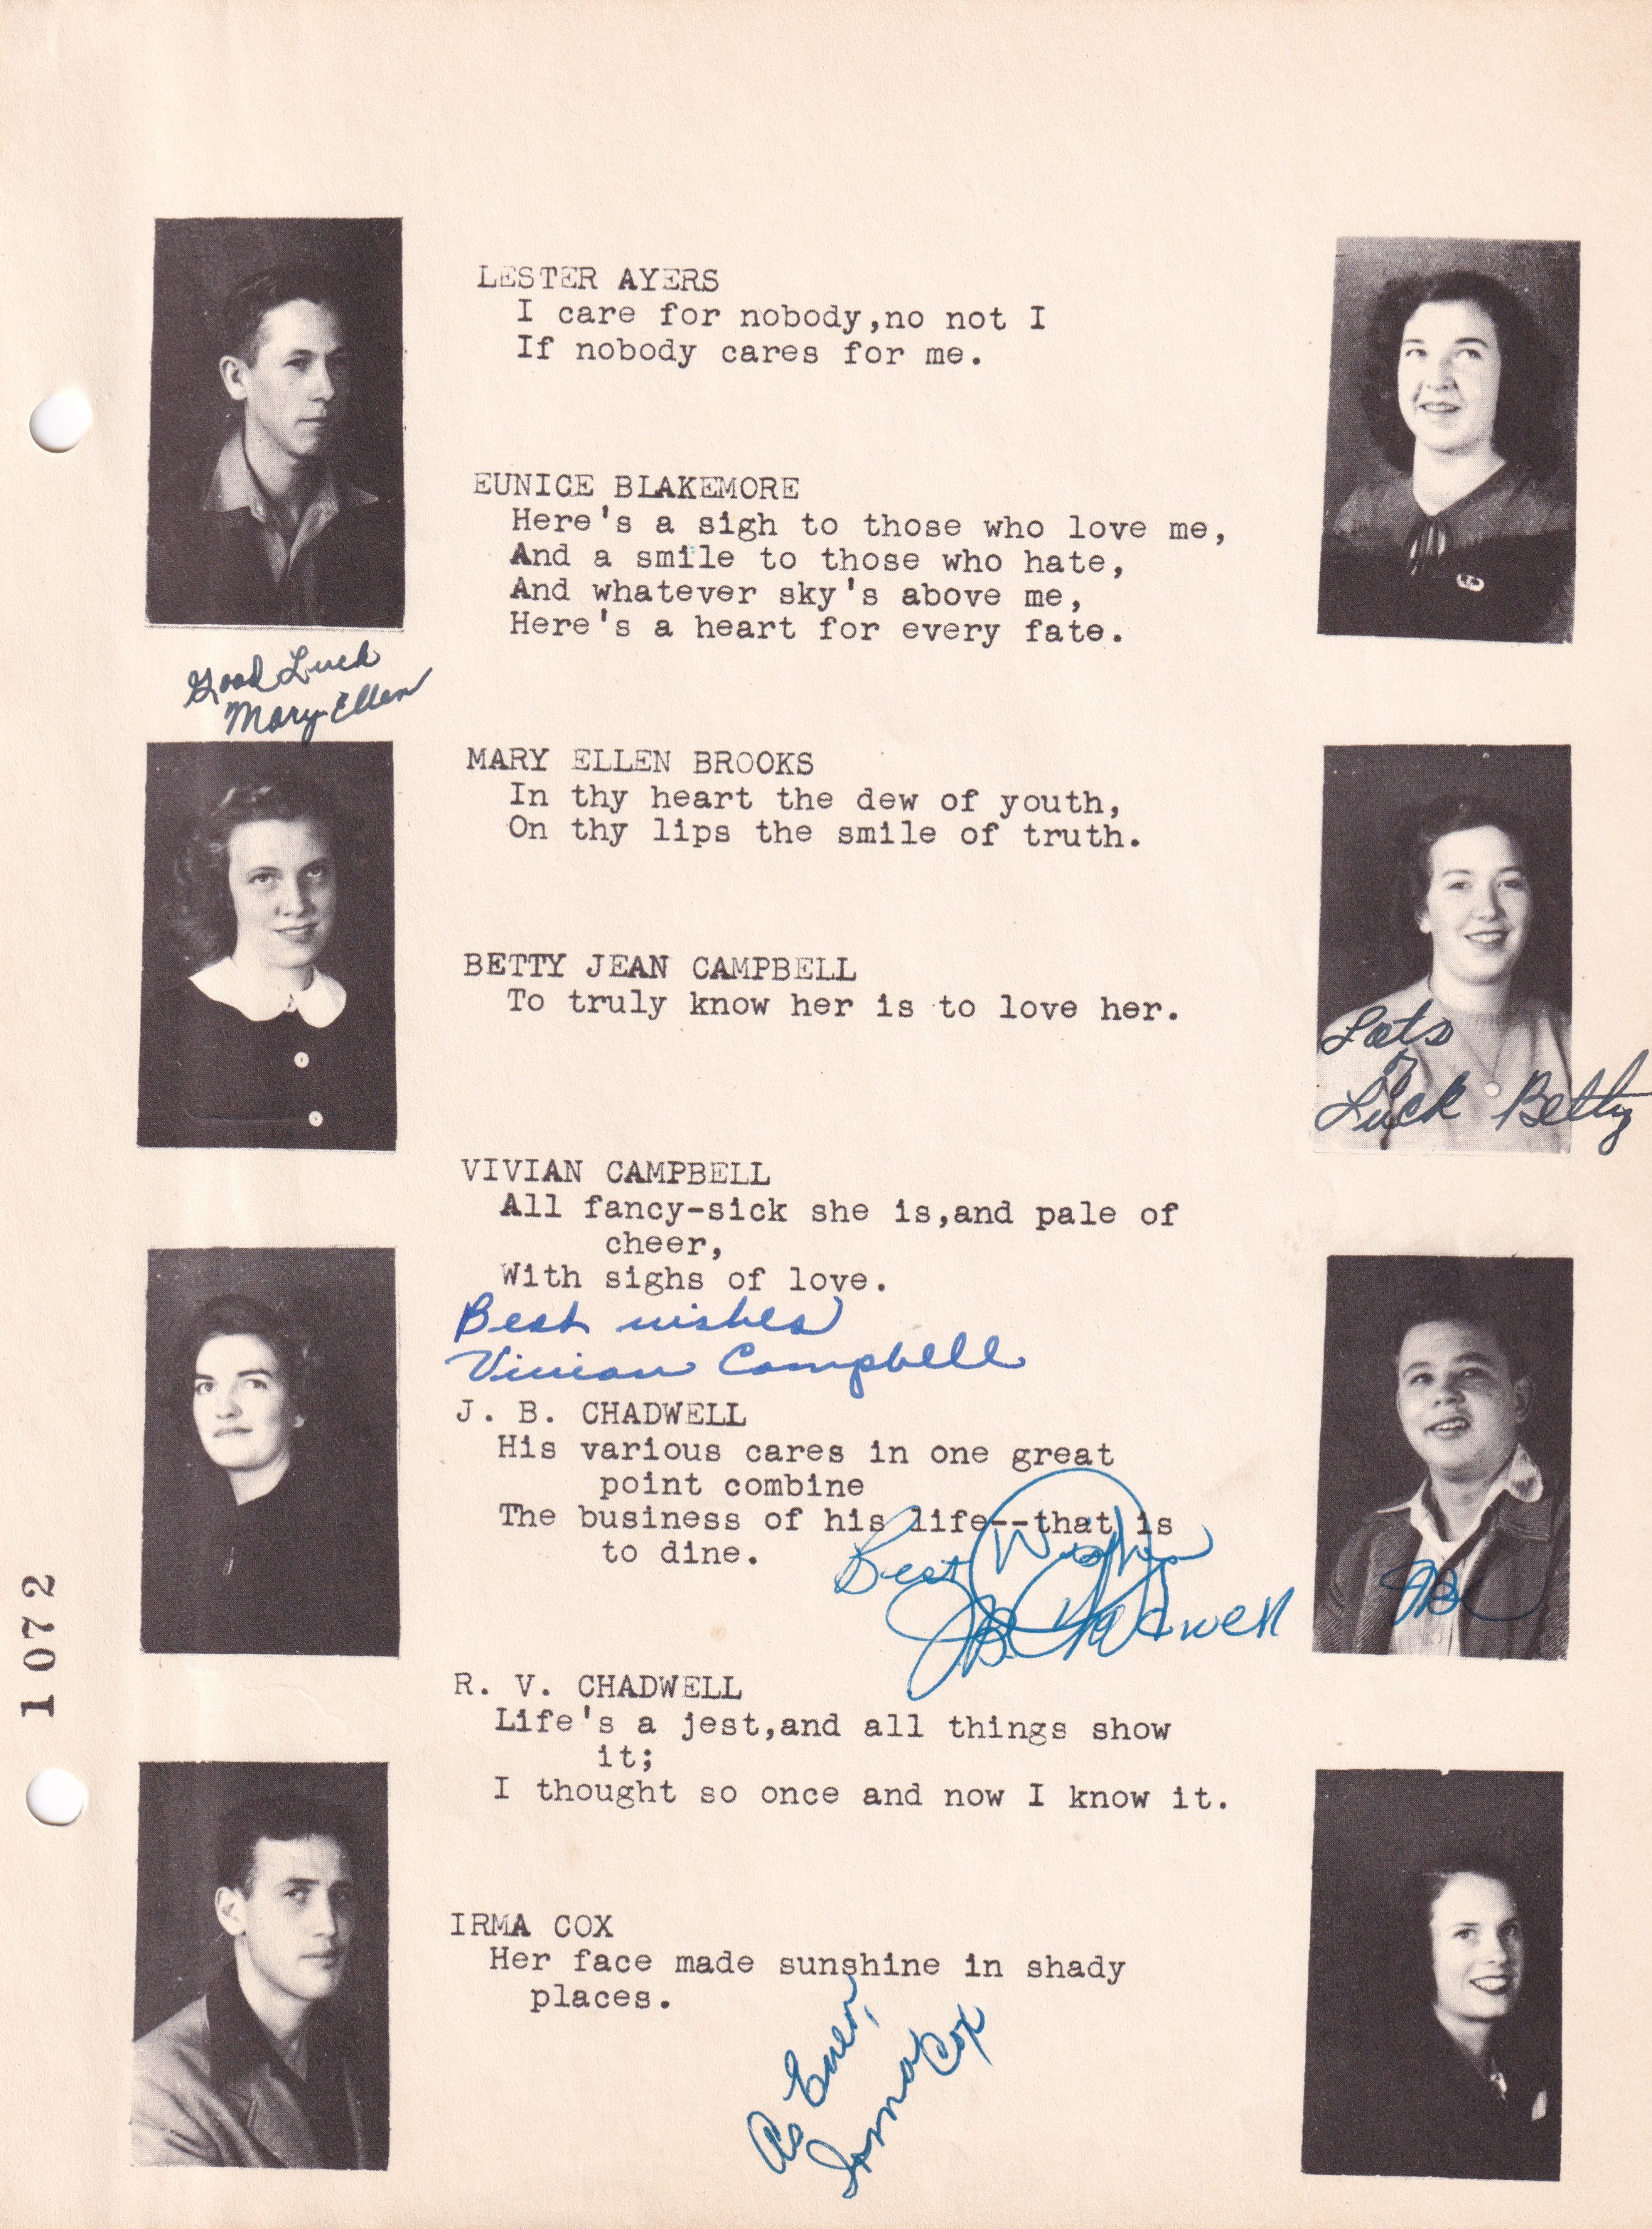 LESTER AYERS
I care for nobody,no not I
If nobody cares for me.
EUNICE BLAKEMORE
Here's a sigh to those who love me,
And a smile to those who hate,
And whatever sky's above me,
Here's a heart for every fate.
Good Luck
Mary Ellen
MARY ELLEN BROOKS
In thy heart the dew of youth,
On thy lips the smile of truth.
BETTY JEAN CAMPBELL
To truly know her is to love her.
Lots
of
Luck Betty
VIVIAN CAMPBELL
All fancy-sick she is,and pale of
cheer,
With sighs of love.
Best wishes
Vivian Campbell
J. B. CHADWELL
His various cares in one great
point combine
The business of his life--that is
to dine.
Best Wishes
JB Chadwell
JB
R. V. CHADWELL
Life's a jest,and all things show
it;
I thought so once and now I know it.
IRMA COX
Her face made sunshine in shady
places.
As Ever,
Irma Cox
1072